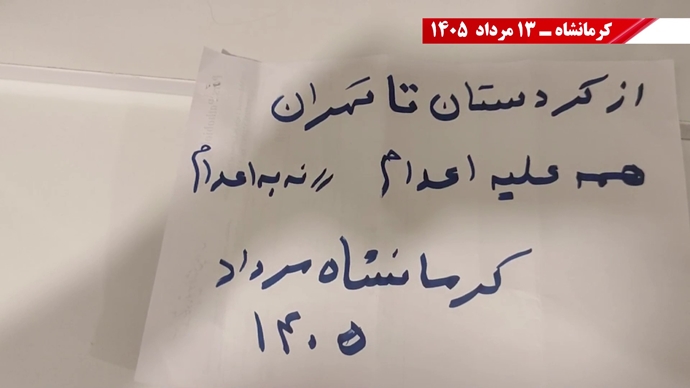 کرمانشاه ــ ۱۳ مرداد ۱۴۰۵
از کردستان تا تهران
همه علیه اعدام // نه به اعدام
کرمانشاه مرداد
۱۴۰۵